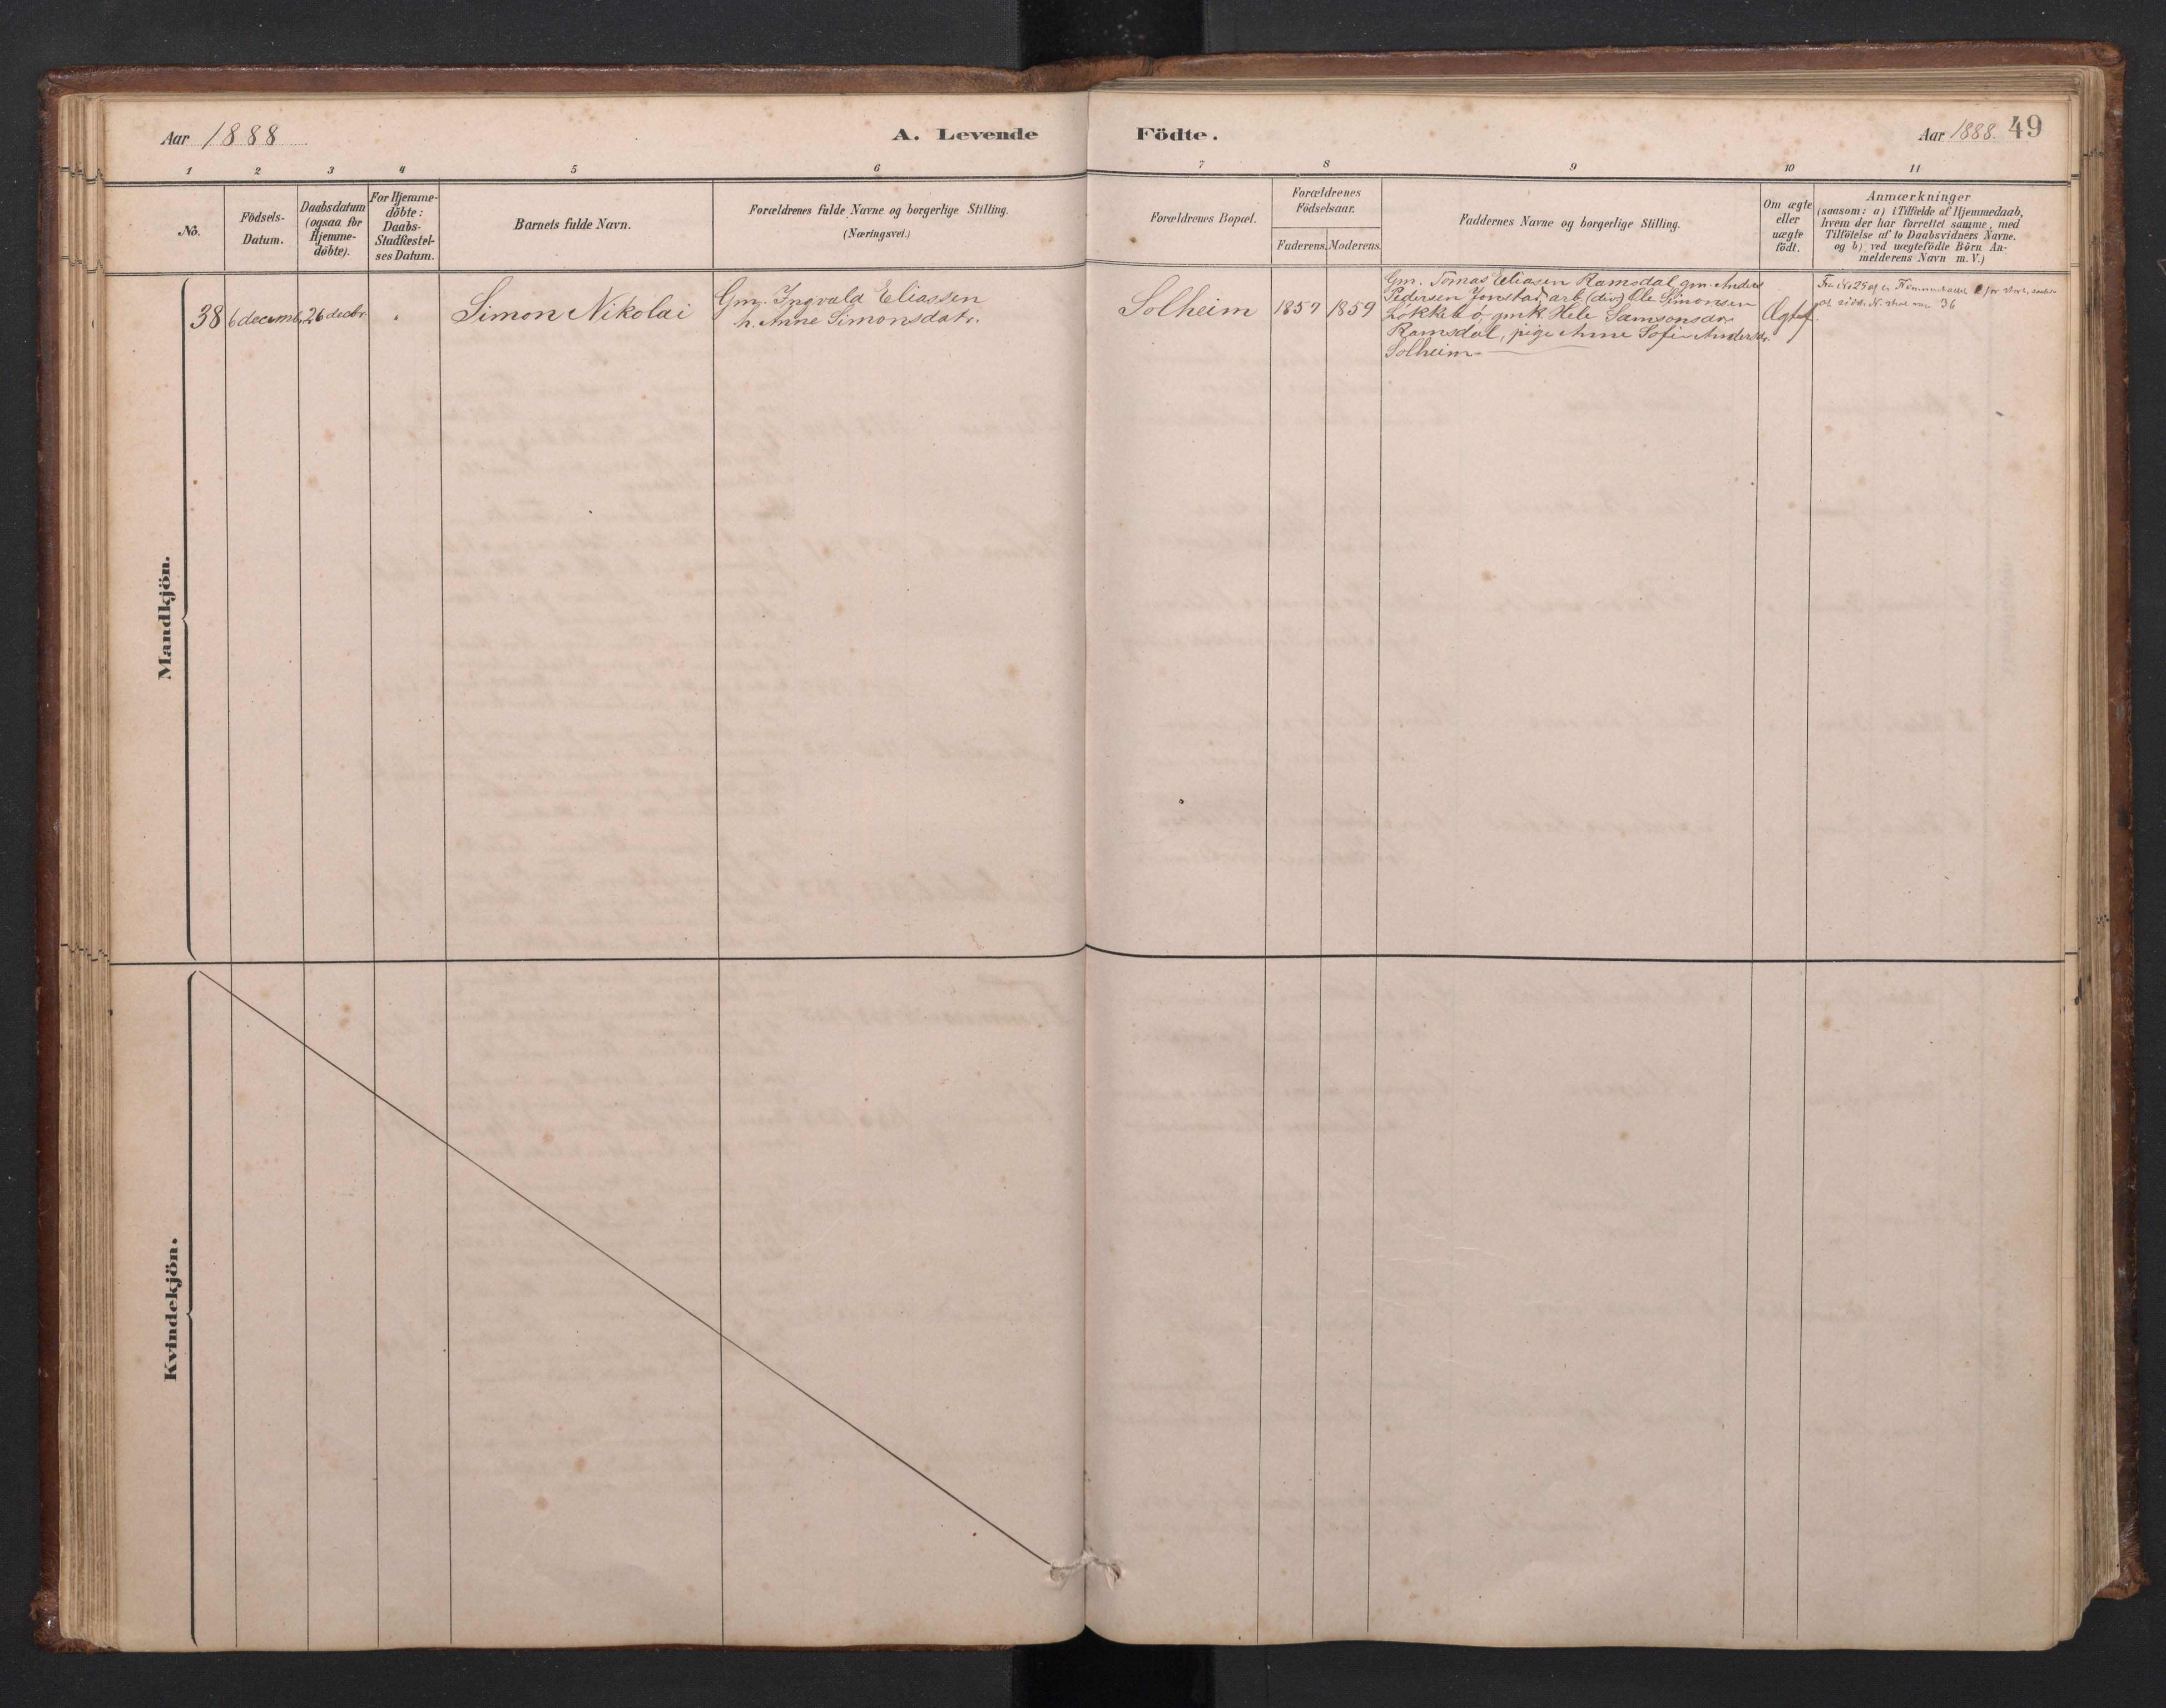 Aar 1888
A. Levende
Födte.
Aar 1888. 49
1 2 3 4 5 6 7 8 9 10 11
No.
Födsels-
Datum.
Daabsdatum
(ogsaa for
Hjemme-
döbte).
For Hjemme-
döbte:
Daabs-
Stadfæstel-
ses Datum.
Barnets fulde Navn.
Forældrenes fulde Navne og borgerlige Stilling.
(Næringsvei.)
Forældrenes Bopæl.
Forældrenes
Födselsaar.
Faderens. Moderens.
Faddernes Navne og borgerlige Stilling.
Om ægte
eller
uægte
födt.
Anmærkninger
(saasom: a) i Tilfælde af Hjemmedaab,
hvem der har forrettet samme, med
Tilföielse af to Daabsvidners Navne.
og b) ved uægtefödte Börn An-
melderens Navn m. V.)
Mandkjön.
38
6 decemb.
26 decbr.
Simon Nikolai
Gm. Ingvald Eliassen
h. Anne Simonsdatr.
Solheim
1857
1859
Gm. Tomas Eliasen Ramsdal, gm. Anders
Pedersen Jonstad, arb. Ole Simonsen
Løkkebø, gmk. Hele Samsonsdr.
Ramsdal, pige Anne Sofie Andersdr.
Solheim.
Ægtef.
Fra No 29 af er
36
Kvindekjön.